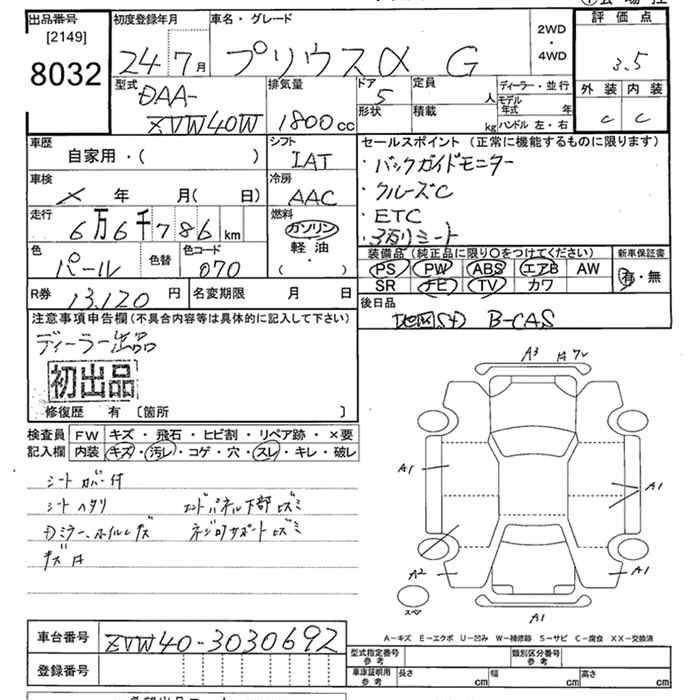 出品番号 初度登録年月 車名・グレード 2WD・4WD 評価点
[2149]
8032 24 7月 プリウスα G 3.5
型式 排気量 ドア 定員 人 ディーラー・並行 外装 内装
DAA- 5 モデル年式 年 C C
ZVW40W 1800cc 形状 積載 kg ハンドル 左・右
車歴 シフト セールスポイント (正常に機能するものに限ります)
自家用・( ) IAT ・バックガイドモニター
車検 冷房 ・クルーズC
年 月( 日) AAC ・ETC
走行 燃料
6万6千786km ガソリン
色 色替 色コード 軽油
パール 070 ( ・ )
装備品 (純正品に限り〇をつけてください) 新車保証書
PS PW ABS エアB AW 有・無
SR ナビ TV カワ
R券 13,120円 名変期限 月 日 後日品
地図SD B-CAS
注意事項申告欄(不具合内容等は具体的に記入して下さい)
ディーラー出品
初出品
修復歴 有 〔箇所 〕
検査員 FW キズ・飛石・ヒビ割・リペア跡・×要
記入欄 内装 キズ・汚レ・コゲ・穴・スレ・キレ・破レ
シートカバー付
シートヘタリ エンドパネル下部ヒズミ
ミラー、ホイルキズ
キズ
A3
A1 A1
A2 A1
スペア A1
A-キズ E-エクボ U-凹み W-補修跡 S-サビ C-腐食 XX-交換済
車台番号 ZVW40-3030692
登録番号
型式指定番号 参考 類別区分番号 参考
車庫証明用 参考 長さ cm 幅 cm 高さ cm